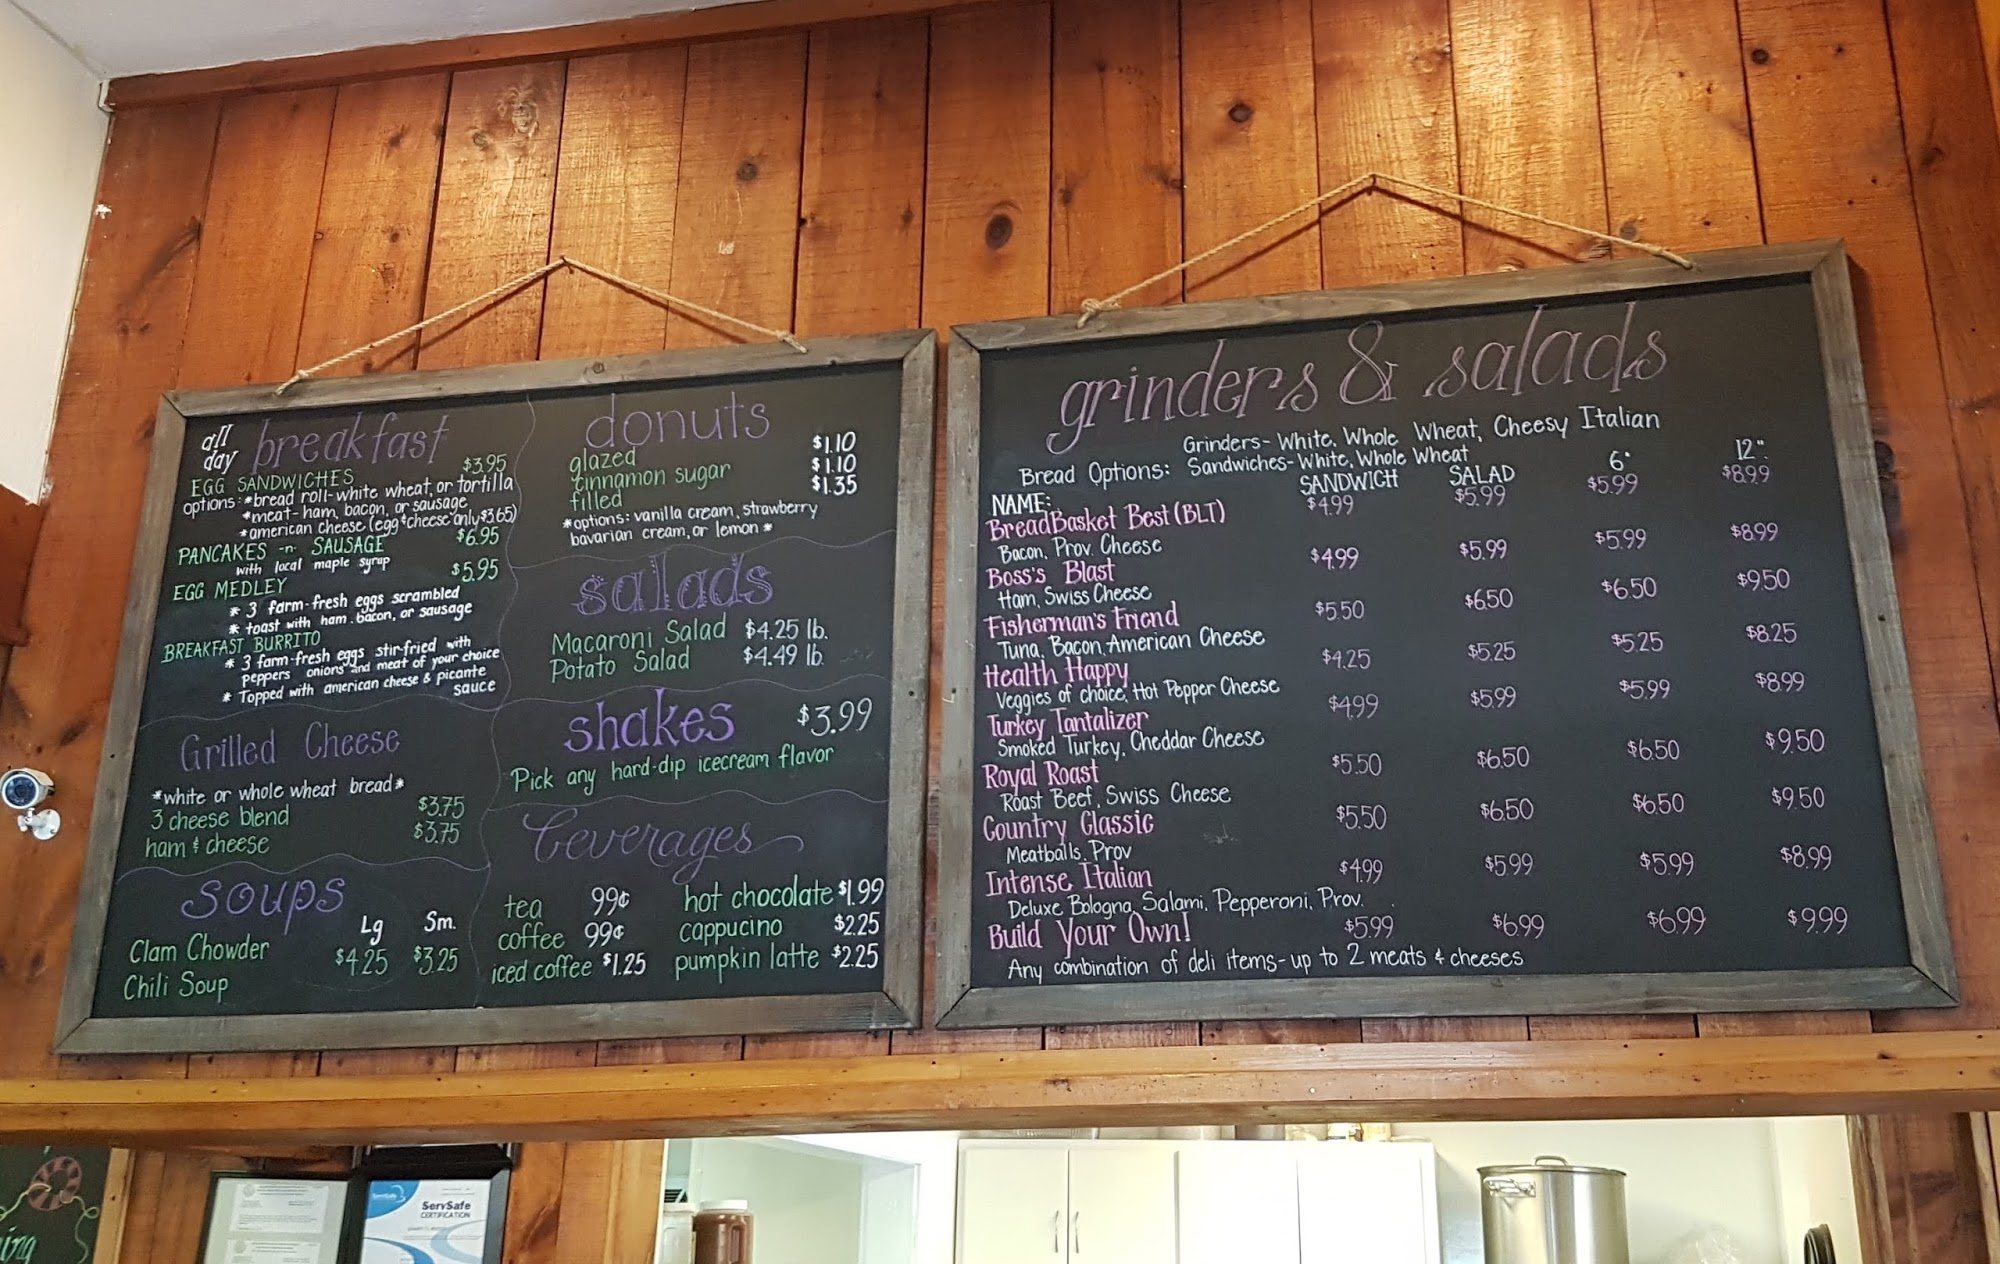 all day breakfast
EGG SANDWICHES $3.95
options: *bread roll-white wheat, or tortilla
*meat-ham, bacon, or sausage
*american cheese (egg & cheese only $3.65)
PANCAKES -n- SAUSAGE $6.95
with local maple syrup
EGG MEDLEY $5.95
* 3 farm-fresh eggs scrambled
* toast with ham, bacon, or sausage
BREAKFAST BURRITO
* 3 farm-fresh eggs stir-fried with
peppers onions and meat of your choice
* Topped with american cheese & picante
sauce
Grilled Cheese
*white or whole wheat bread*
3 cheese blend $3.75
ham & cheese $3.75
soups
Lg Sm.
Clam Chowder $4.25 $3.25
Chili Soup
donuts
glazed $1.10
cinnamon sugar $1.10
filled $1.35
*options: vanilla cream, strawberry
bavarian cream, or lemon *
salads
Macaroni Salad $4.25 lb.
Potato Salad $4.49 lb.
shakes $3.99
Pick any hard-dip icecream flavor
beverages
tea 99¢ hot chocolate $1.99
coffee 99¢ cappucino $2.25
iced coffee $1.25 pumpkin latte $2.25
grinders & salads
Bread Options: Grinders- White, Whole Wheat, Cheesy Italian
Sandwiches- White, Whole Wheat
NAME: SANDWICH SALAD 6" 12"
BreadBasket Best (BLT) $4.99 $5.99 $5.99 $8.99
Bacon, Prov. Cheese
Boss's Blast $4.99 $5.99 $5.99 $8.99
Ham, Swiss Cheese
Fisherman's Friend $5.50 $6.50 $6.50 $9.50
Tuna, Bacon, American Cheese
Health Happy $4.25 $5.25 $5.25 $8.25
Veggies of choice, Hot Pepper Cheese
Turkey Tantalizer $4.99 $5.99 $5.99 $8.99
Smoked Turkey, Cheddar Cheese
Royal Roast $5.50 $6.50 $6.50 $9.50
Roast Beef, Swiss Cheese
Country Classic $5.50 $6.50 $6.50 $9.50
Meatballs, Prov
Intense Italian $4.99 $5.99 $5.99 $8.99
Deluxe Bologna, Salami, Pepperoni, Prov.
Build Your Own! $5.99 $6.99 $6.99 $9.99
Any combination of deli items- up to 2 meats & cheeses
ServSafe
ServSafe
CERTIFICATION